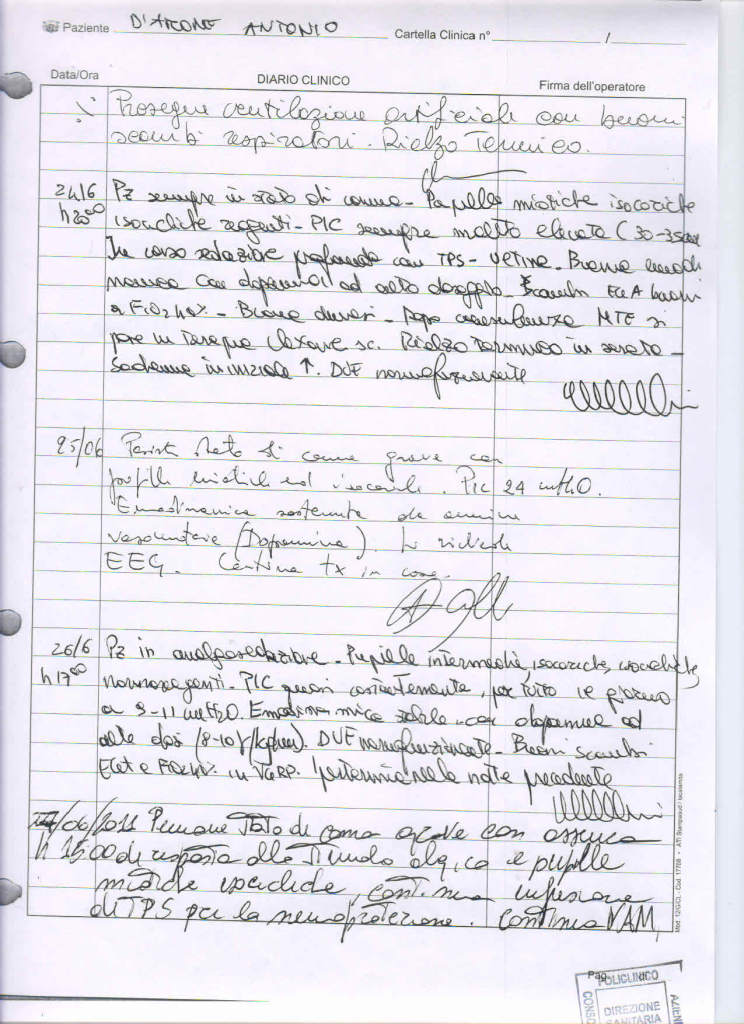 Paziente D'ARCONE ANTONIO Cartella Clinica n° /
Data/Ora DIARIO CLINICO Firma dell'operatore
Prosegue ventilazione artificiale con buoni
scambi respiratori. Rialzo Termico.
24/6 Pz sempre in stato di coma - Pupille miotiche isocoriche
h 20°° isocicliche reagenti - PIC sempre molto elevata (30-35
In corso sedazione profonda con TPS - Buona
con dopamina ad alto dosaggio - Scambi EGA buoni
a FiO2 40% - Buona diuresi - Dopo consulenza si
pone in Terapia Clexane sc. Rialzo termico in serata -
Sodiemia in iniziale ↑. DVE normofunzionante
25/06 Persiste stato di coma grave con
pupille miotiche ed isocoriche. PIC 24 mmH2O.
Emodinamica sostenuta da amine
vasoattive (Dopamina). Si richiede
EEG. Continua tx in corso.
26/6 Pz in analgosedazione - Pupille intermedie, isocoriche, isocicliche,
h 17°° non reagenti - PIC quasi costantemente, per tutto il giorno
a 9-11 mmH2O. Emodinamica stabile con dopamina ad
alte dosi (8-10 γ/kg/min). DVE normofunzionante - Buoni scambi
FiO2 40% in Ipertermia nella notte precedente
/06/2011 Permane stato di coma grave con assenza
h 15.00 di risposta allo stimolo algico e pupille
miotiche isocicliche, continua infusione
di TPS per la neuroprotezione. Continua VAM,
Mod. 12/GCL - Cod. 17768 • ATI Stampasud / Iscalenda
Pag.
POLICLINICO
DIREZIONE
SANITARIA
CONSO
AZIEN